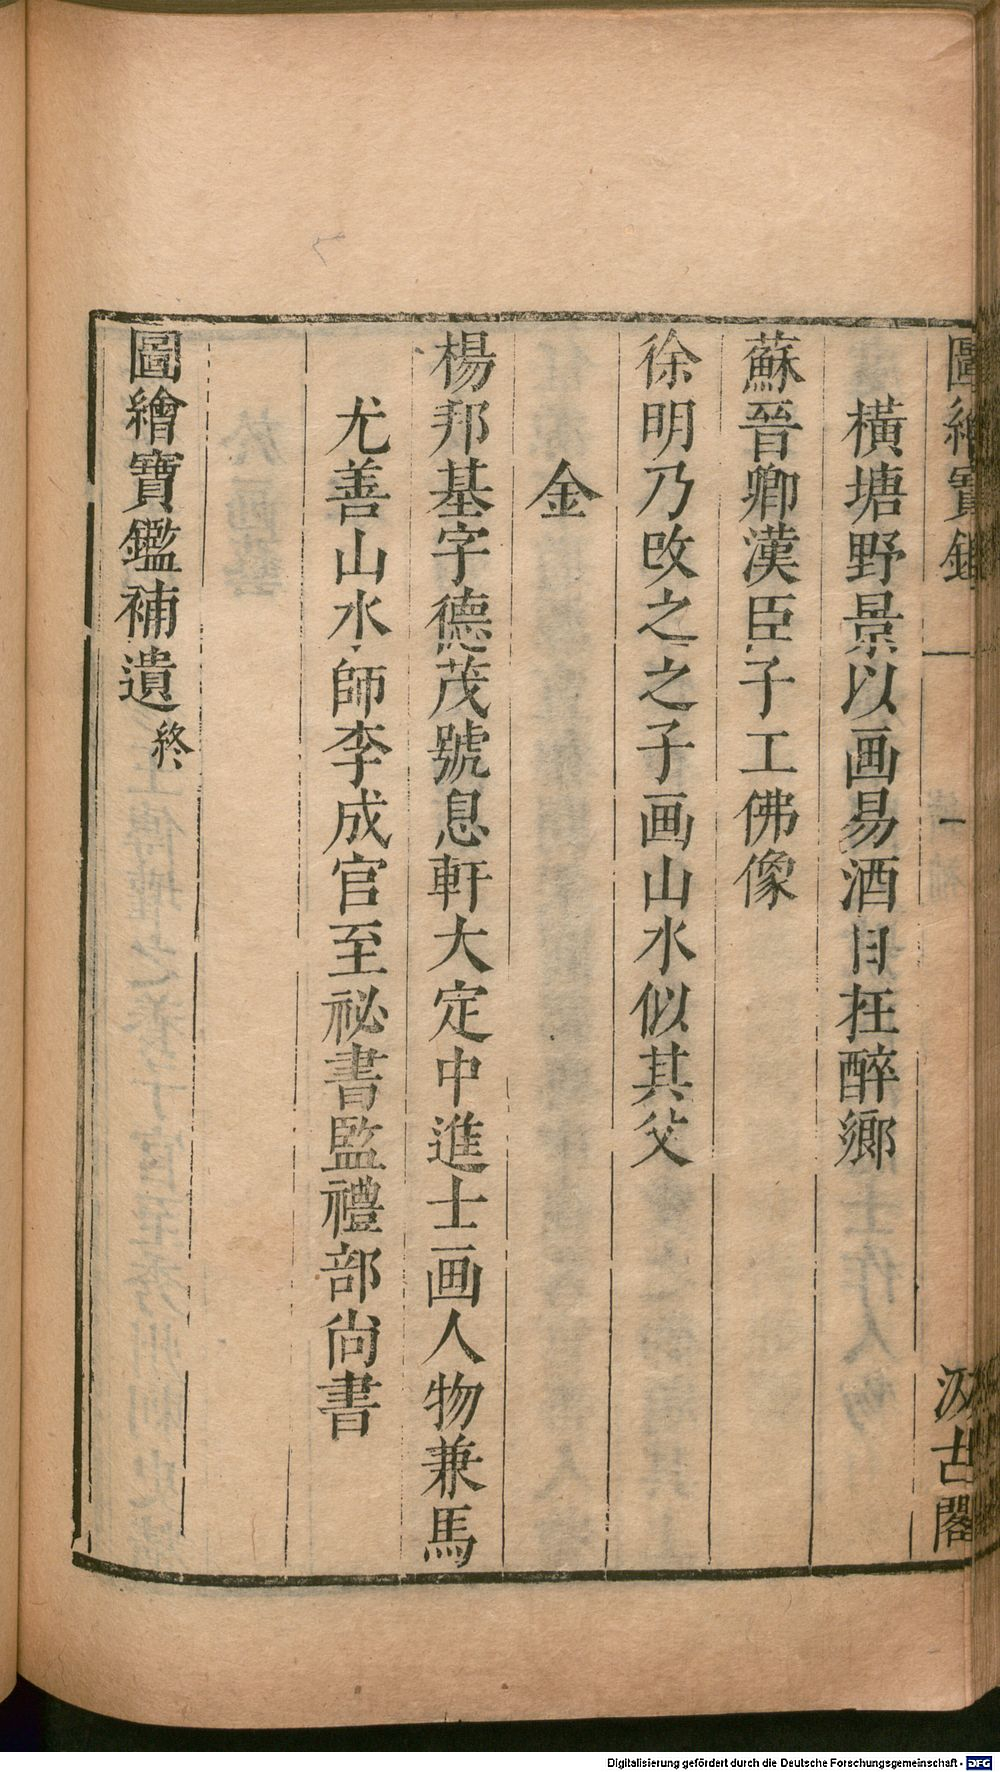 圖繪寶鑑
汲古閣
橫塘野景以画昜酒日在醉鄉
蘇晉卿漢臣子工佛像
徐明乃攺之之子画山水似其父
金
楊邦基字德茂號息軒大定中進士画人物兼馬
尤善山水師李成官至祕書監禮部尚書
圖繪寶鑑補遺終
Digitalisierung gefördert durch die Deutsche Forschungsgemeinschaft - DFG